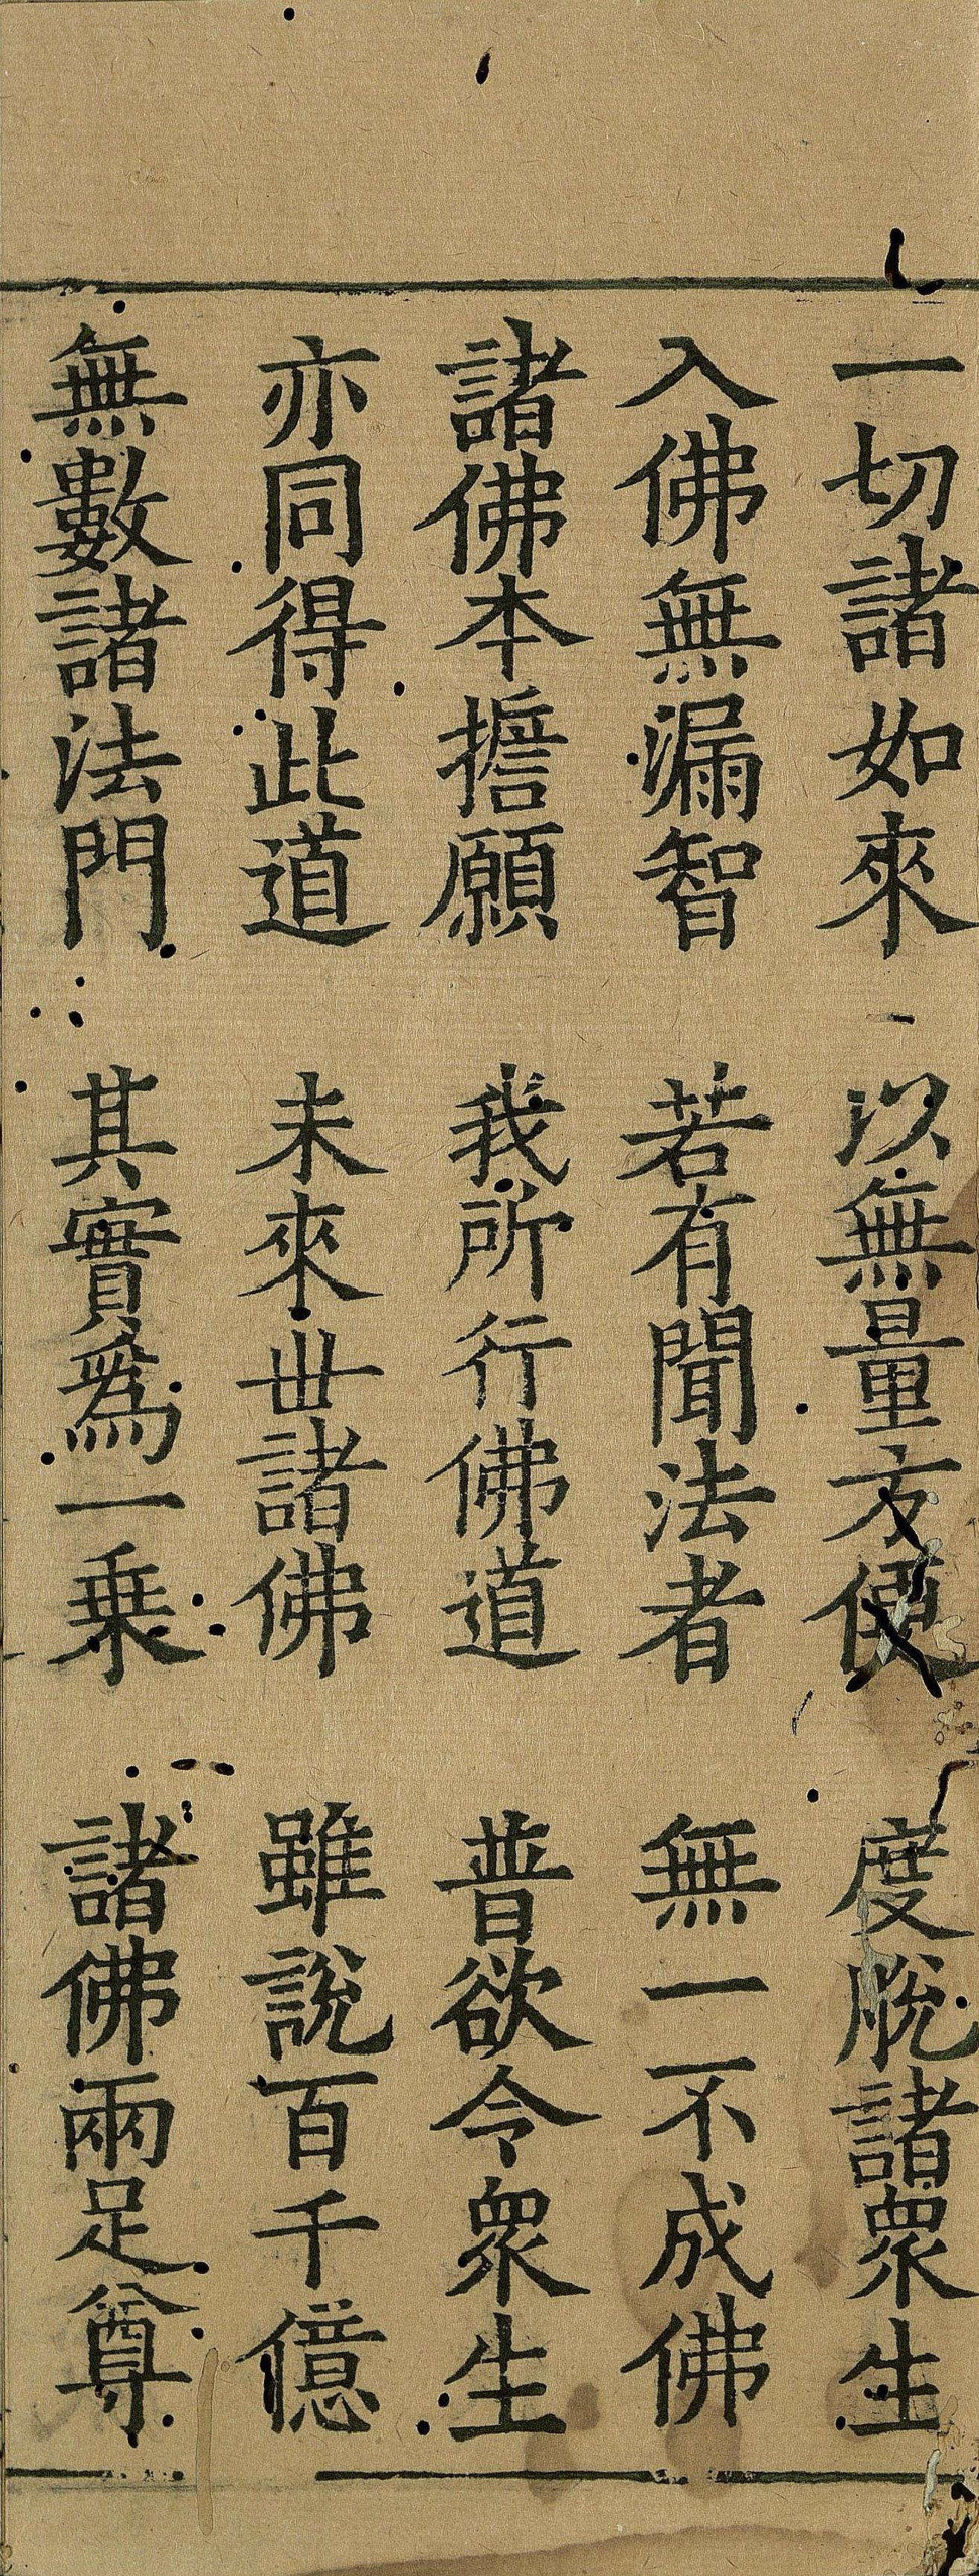 一切諸如來　以無量方便　度脫諸衆生
入佛無漏智　若有聞法者　無一不成佛
諸佛本擔願　我所行佛道　普欲令衆生
亦同得此道　未來丗諸佛　雖說百千億
無數諸法門　其實爲一乗　諸佛兩足尊